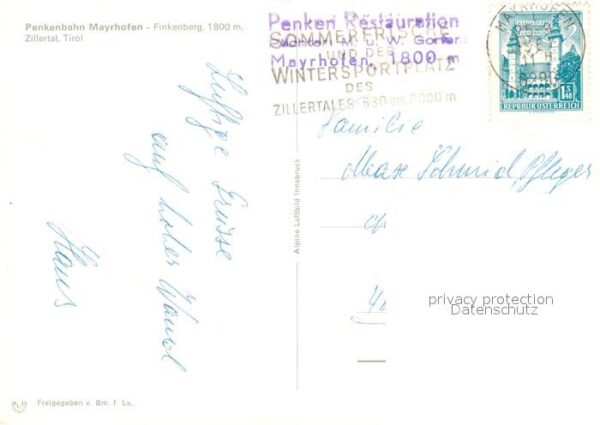 Penkenbahn Mayrhofen - Finkenberg, 1800 m,
Zillertal, Tirol
Penken Restauration
Pächter: M. u. W.
Mayrhofen, 1800 m
SOMMERFRISCHE
UND DER
WINTERSPORTPLATZ
DES
ZILLERTALES 630 bis 2000 m
MAYRHOFEN
1 S 40
REPUBLIK ÖSTERREICH
Luftige Grüsse
auf hoher
Hans
Familie
Max Schmid
Alpine Luftbild Innsbruck
privacy protection
Datenschutz
Freigegeben v. Bm. f. Lv.